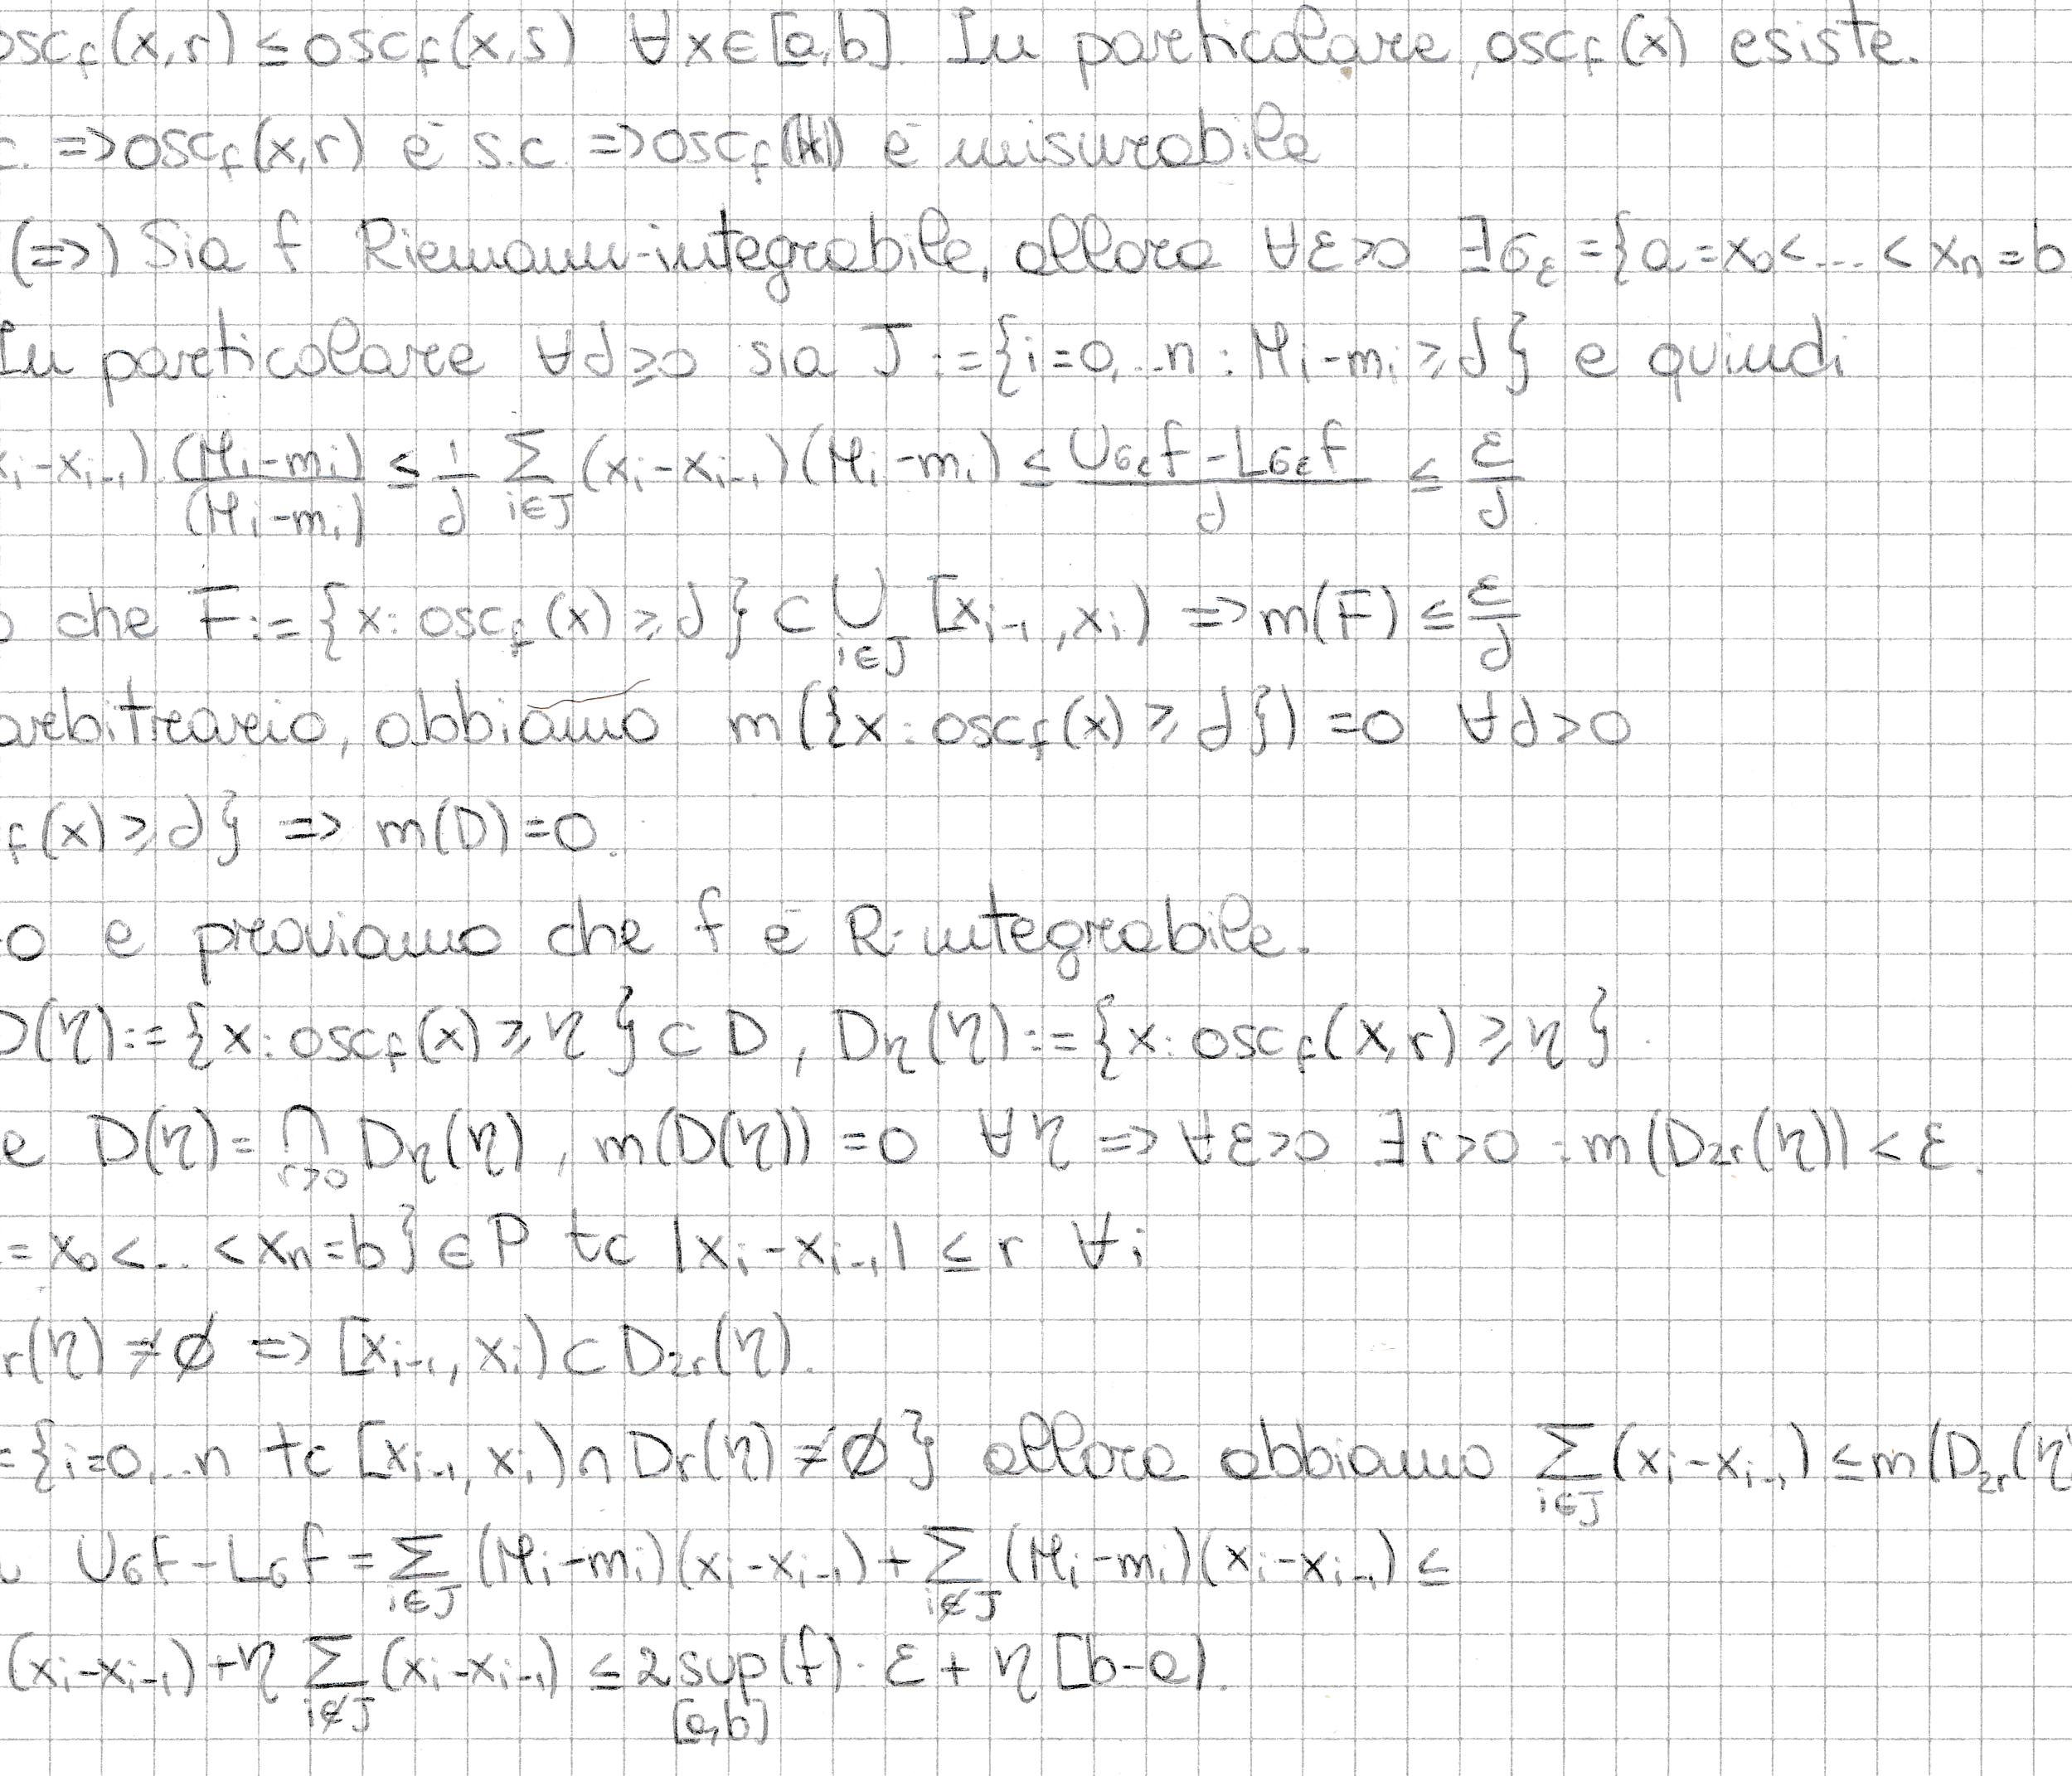 osc_f(x,r) ≤ osc_f(x,s) ∀x∈[a,b]. In particolare, osc_f(x) esiste.
c. => osc_f(x,r) è s.c. => osc_f(x) è misurabile
(=>) Sia f Riemann-integrabile, allora ∀ε>0 ∃σ_ε = {a = x_0 < ... < x_n = b
In particolare ∀d≥0 sia J := {i=0,...n : M_i - m_i ≥ d} e quindi
x_i - x_{i-1}) (M_i - m_i)/(M_i - m_i) ≤ 1/d Σ_{i∈J} (x_i - x_{i-1})(M_i - m_i) ≤ (U_{σ_ε}f - L_{σ_ε}f)/d ≤ ε/d
o che F := {x : osc_f(x) ≥ d} ⊂ ∪_{i∈J} [x_{i-1}, x_i) => m(F) ≤ ε/d
arbitrario, abbiamo m({x : osc_f(x) ≥ d}) = 0 ∀d>0
f(x) ≥ d} => m(D)=0.
0 e proviamo che f è R-integrabile.
D(η) := {x : osc_f(x) ≥ η} ⊂ D, D_η(η) := {x : osc_f(x,r) ≥ η}.
e D(η) = ∩_{r>0} D_η(η), m(D(η)) = 0 ∀η => ∀ε>0 ∃r>0 : m(D_{2r}(η)) < ε.
= x_0 < ... < x_n = b} ∈ P tc |x_i - x_{i-1}| ≤ r ∀i
r(η) ≠ ∅ => [x_{i-1}, x_i) ⊂ D_{2r}(η).
= {i=0,...n tc [x_{i-1}, x_i) ∩ D_r(η) ≠ ∅} allora abbiamo Σ_{i∈J} (x_i - x_{i-1}) ≤ m(D_{2r}(η
U_σf - L_σf = Σ_{i∈J} (M_i - m_i)(x_i - x_{i-1}) + Σ_{i∉J} (M_i - m_i)(x_i - x_{i-1}) ≤
(x_i - x_{i-1}) + η Σ_{i∉J} (x_i - x_{i-1}) ≤ 2 sup_{[a,b]} (f) · ε + η [b-a).